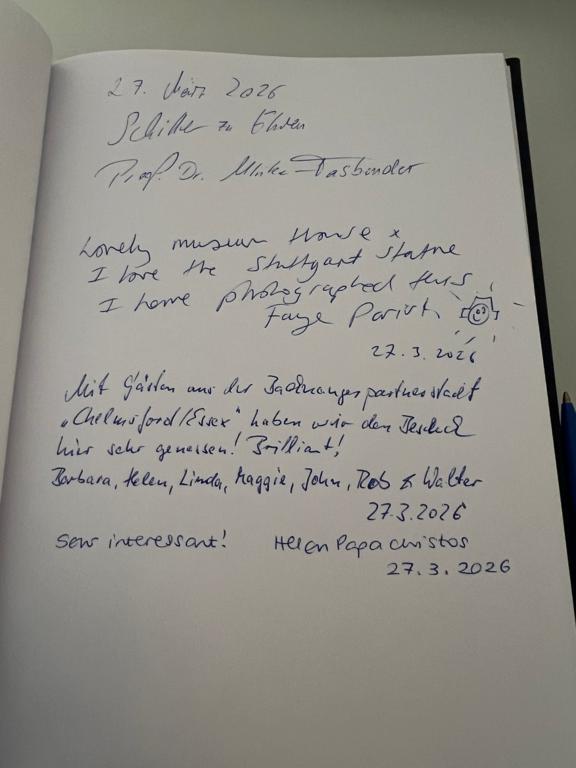 27. März 2026
Schiller zu Ehren
Prof. Dr. Fasbender
Lovely museum House x
I love the Stuttgart statue
I have photographed this
Faye
27.3.2026
Mit Gästen aus der Backnanger partnerstadt
„Chelmsford/Essex" haben wir den Besuch
hier sehr genossen! Brilliant!
Barbara, Helen, Linda, Maggie, John, Rob & Walter
27.3.2026
Sehr interessant! Helen Papachristos
27.3.2026